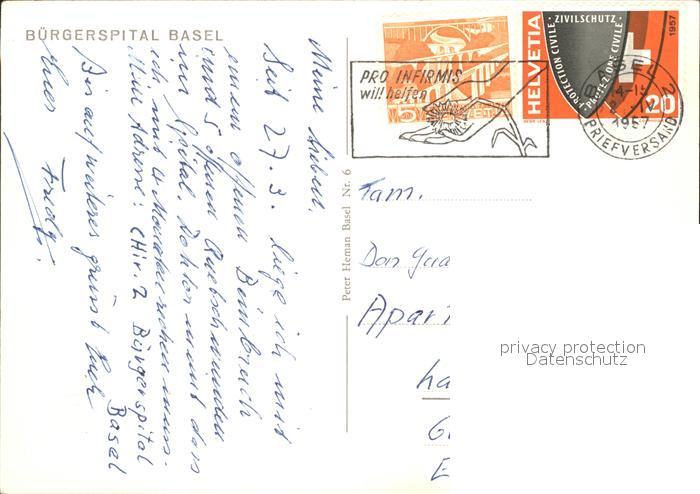 BÜRGERSPITAL BASEL
Meine Lieben.
Seit 27.3. liege ich mit
einem offenen Beinbruch
und 5 offenen Quetschwunden
im Spital. Doktor meint dass
ich mit 4 Monaten rechnen muss.
Meine Adresse: Chir. 2 Bürgerspital
Basel
Bis auf weiteres grüsst Euch
Euer Fredy.
Peter Heman Basel Nr. 6
PRO INFIRMIS
will helfen
5
HELVETIA
PROTECTION CIVILE · ZIVILSCHUTZ · PROTEZIONE CIVILE
1957
20
BASEL 2
14-15
1957
BRIEFVERSAND
Fam.
Don
Apar
ha
G
E
privacy protection
Datenschutz